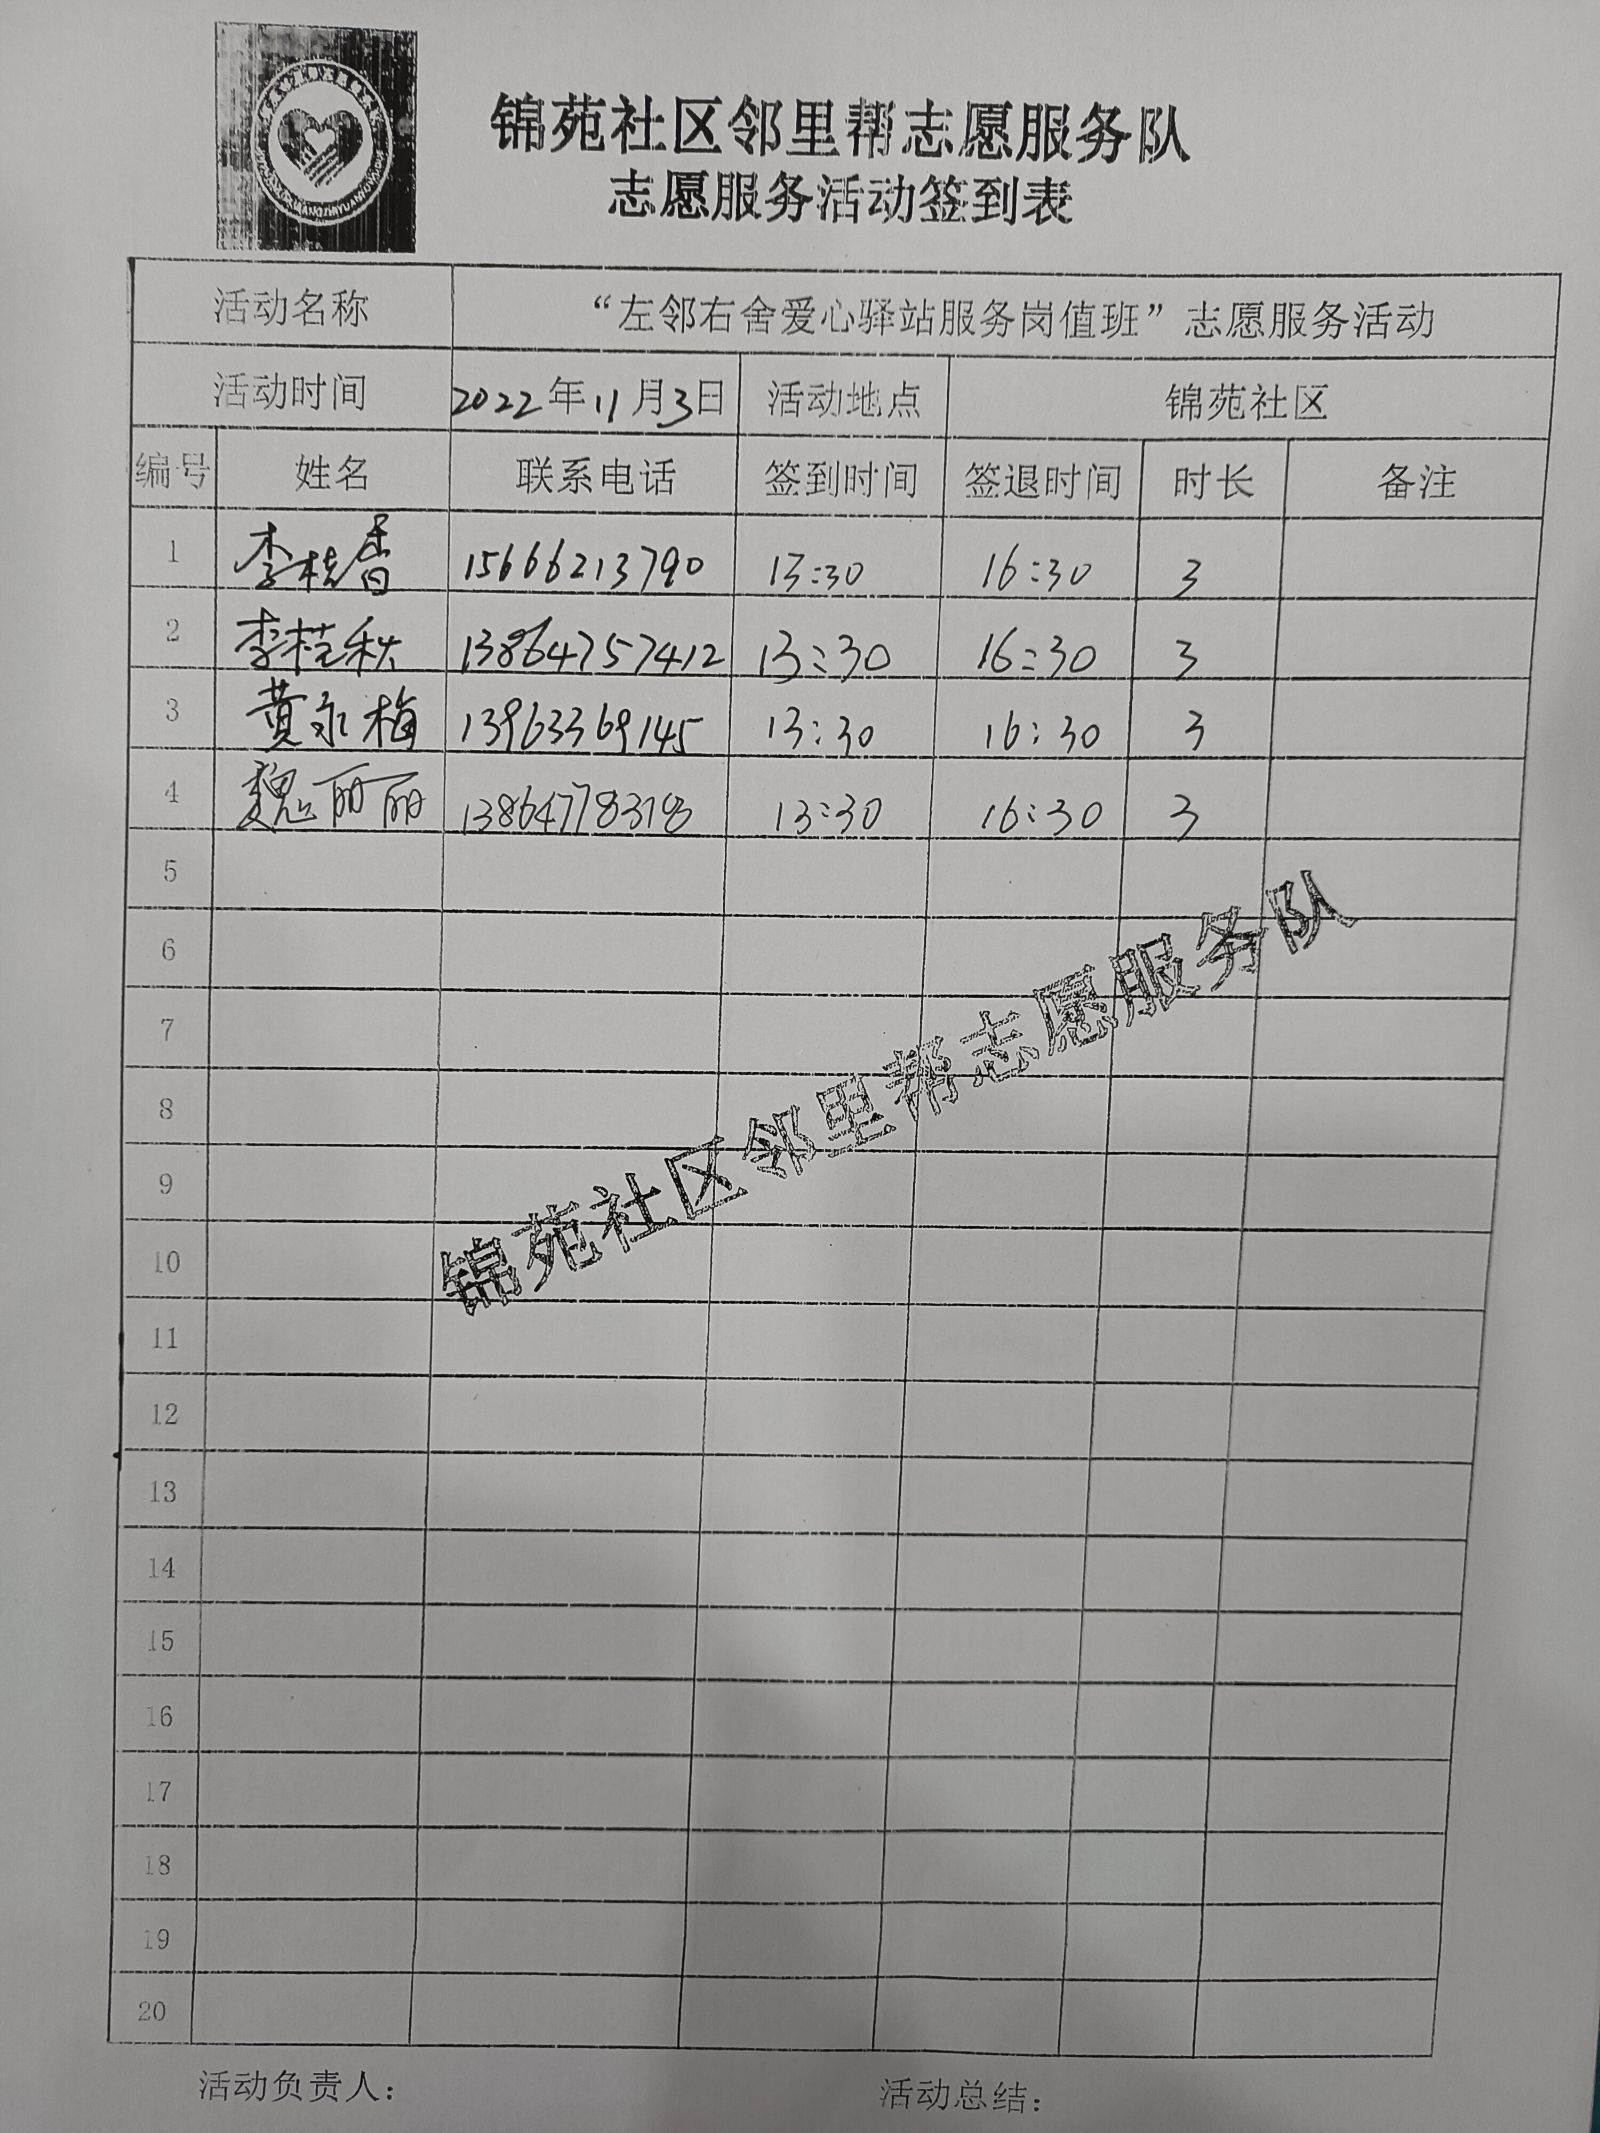 锦苑社区邻里帮志愿服务队
志愿服务活动签到表
活动名称 “左邻右舍爱心驿站服务岗值班”志愿服务活动
活动时间 2022年11月3日 活动地点 锦苑社区
编号 姓名 联系电话 签到时间 签退时间 时长 备注
1 李桂香 15666213790 13:30 16:30 3
2 李桂秋 13864757412 13:30 16:30 3
3 黄永梅 13963369145 13:30 16:30 3
4 魏丽丽 13864778318 13:30 16:30 3
5
6
7
8
9
10
锦苑社区邻里帮志愿服务队
11
12
13
14
15
16
17
18
19
20
活动负责人： 活动总结：